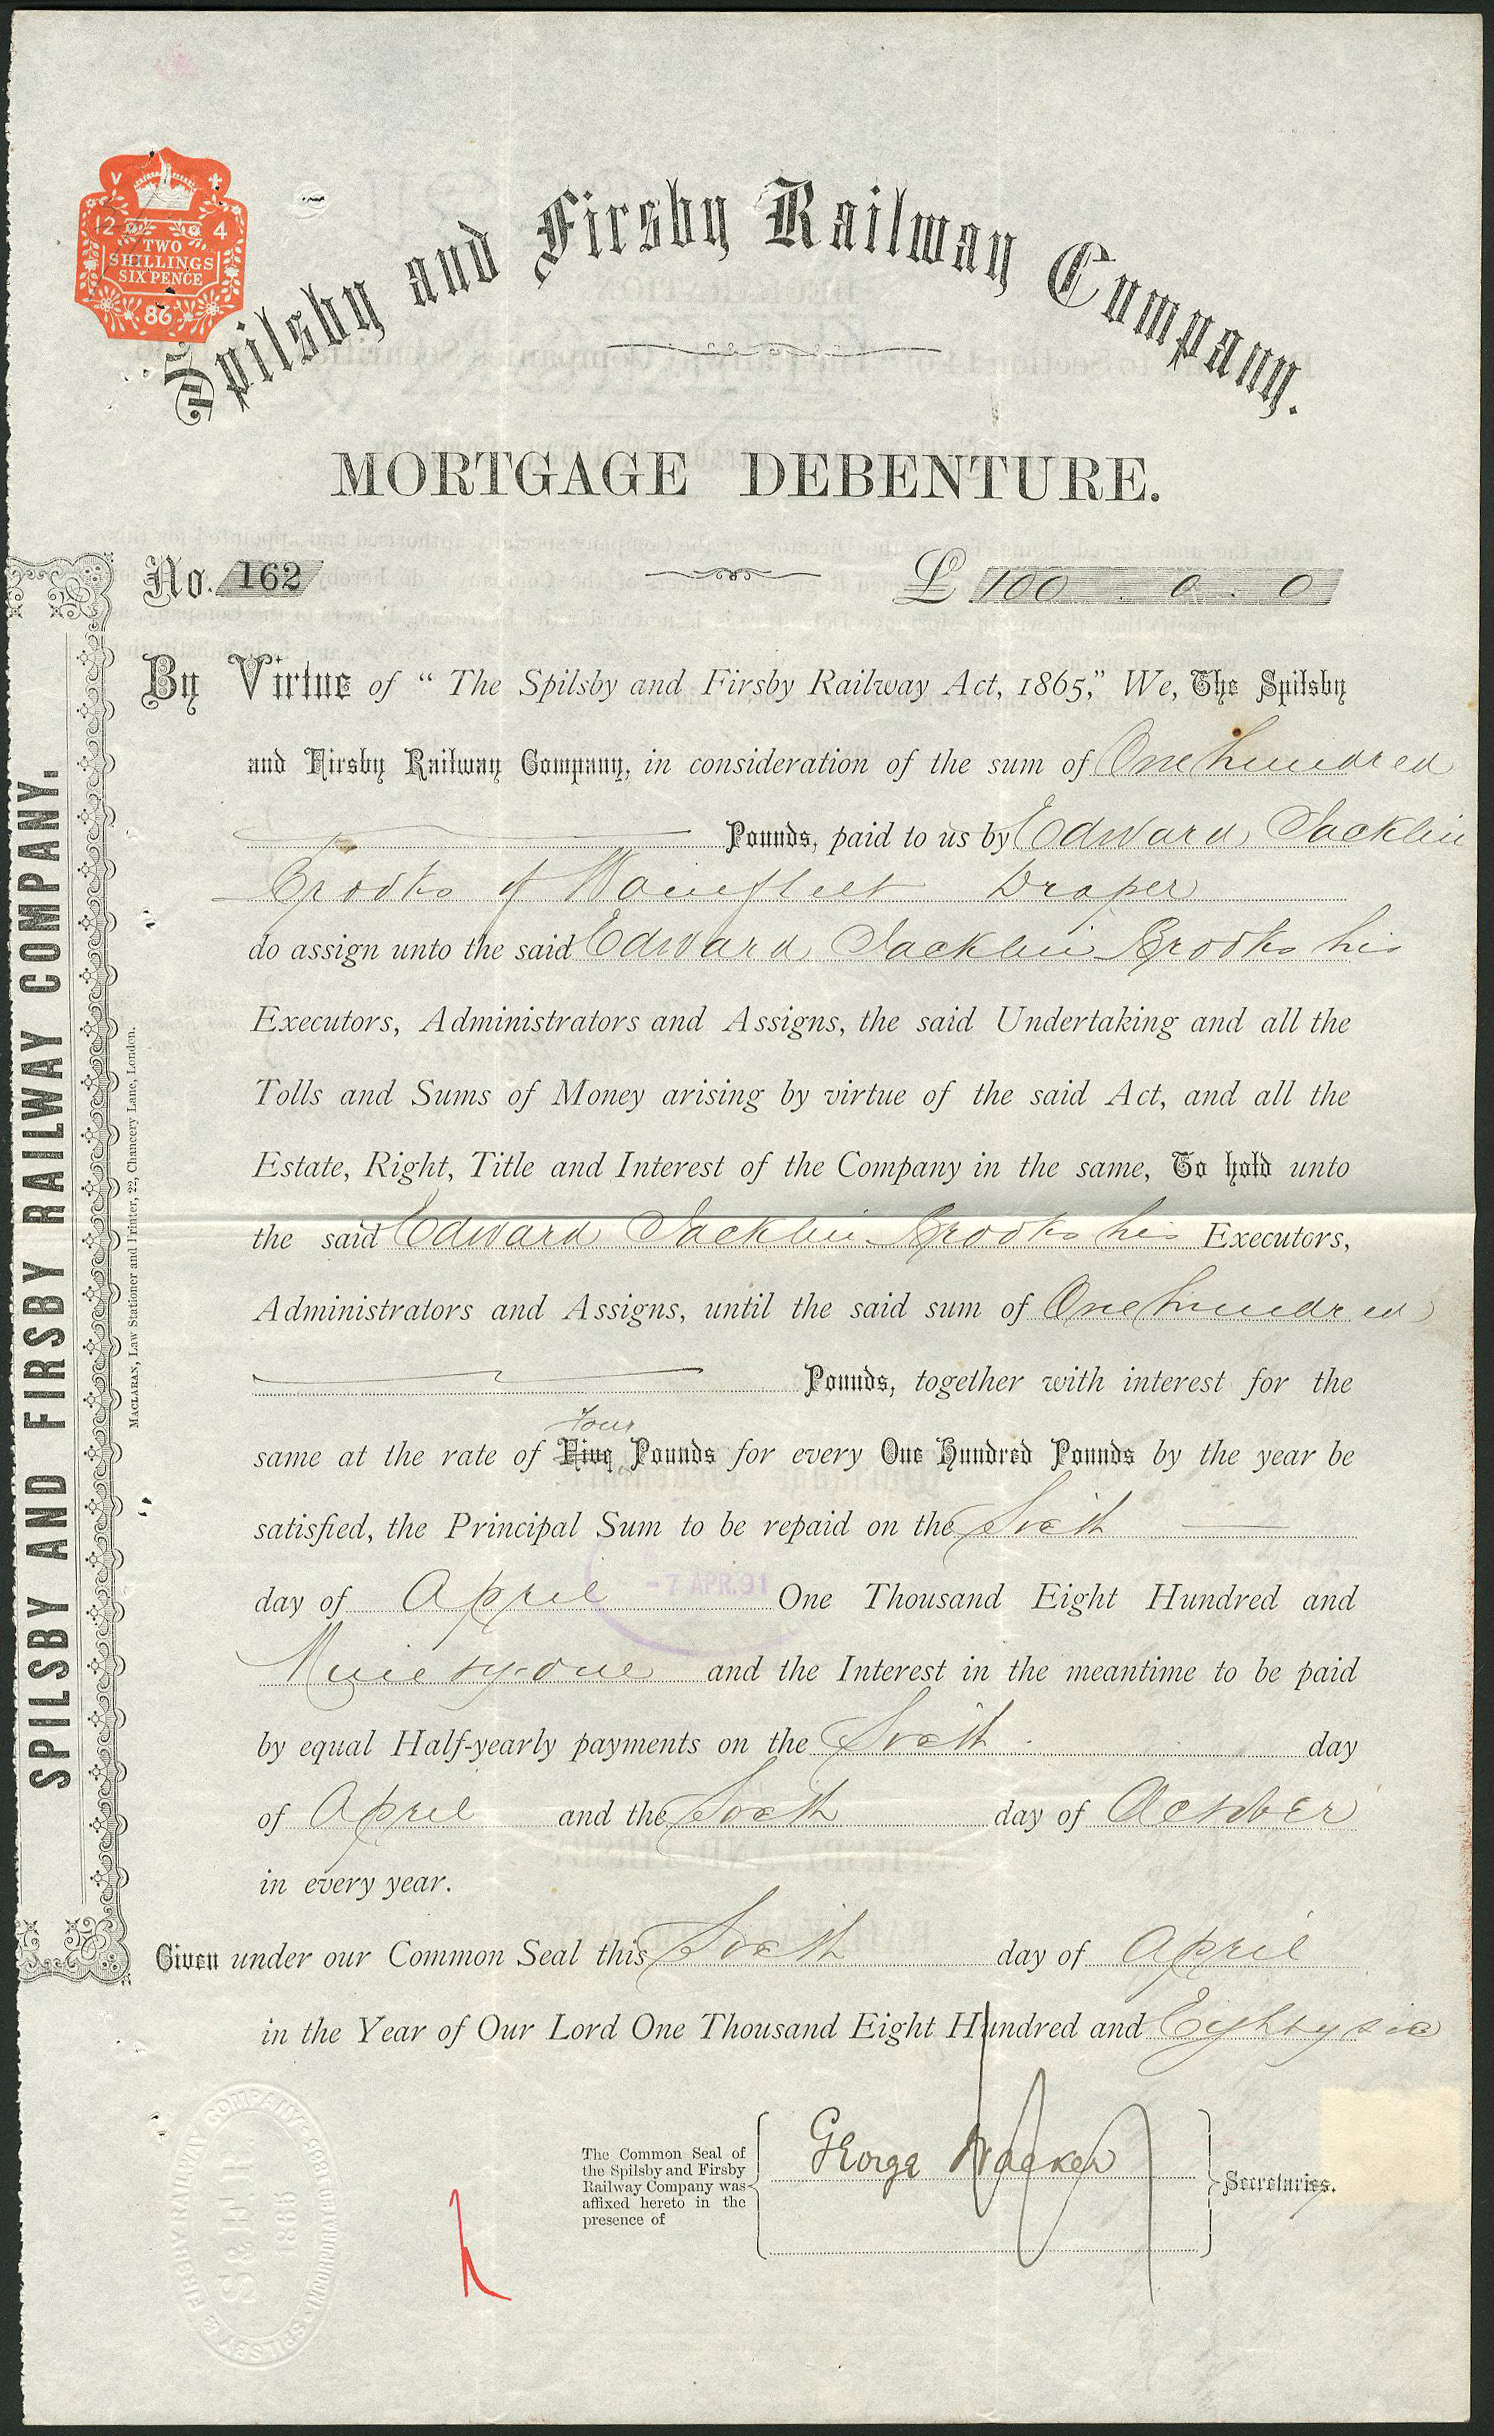 V +
12 4
TWO
SHILLINGS
SIXPENCE
86
Spilsby and Firsby Railway Company.
MORTGAGE DEBENTURE.
No. 162 £ 100 . 0 . 0
By Virtue of “ The Spilsby and Firsby Railway Act, 1865,” We, The Spilsby
and Firsby Railway Company, in consideration of the sum of One hundred
Pounds, paid to us by Edward Jacklin
Crooks of Wainfleet Draper
do assign unto the said Edward Jacklin Crooks his
Executors, Administrators and Assigns, the said Undertaking and all the
Tolls and Sums of Money arising by virtue of the said Act, and all the
Estate, Right, Title and Interest of the Company in the same, To hold unto
the said Edward Jacklin Crooks his Executors,
Administrators and Assigns, until the said sum of One hundred
Pounds, together with interest for the
Four
same at the rate of Five Pounds for every One Hundred Pounds by the year be
satisfied, the Principal Sum to be repaid on the Sixth
-7 APR.91
day of April One Thousand Eight Hundred and
Ninety-one and the Interest in the meantime to be paid
by equal Half-yearly payments on the Sixth day
of April and the Sixth day of October
in every year.
Given under our Common Seal this Sixth day of April
in the Year of Our Lord One Thousand Eight Hundred and Eighty six
The Common Seal of
the Spilsby and Firsby
Railway Company was
affixed hereto in the
presence of
George Walker
Secretaries.
SPILSBY AND FIRSBY RAILWAY COMPANY.
MACLARAN, Law Stationer and Printer, 22, Chancery Lane, London.
SPILSBY & FIRSBY RAILWAY COMPANY INCORPORATED 1865
S & F R
1865